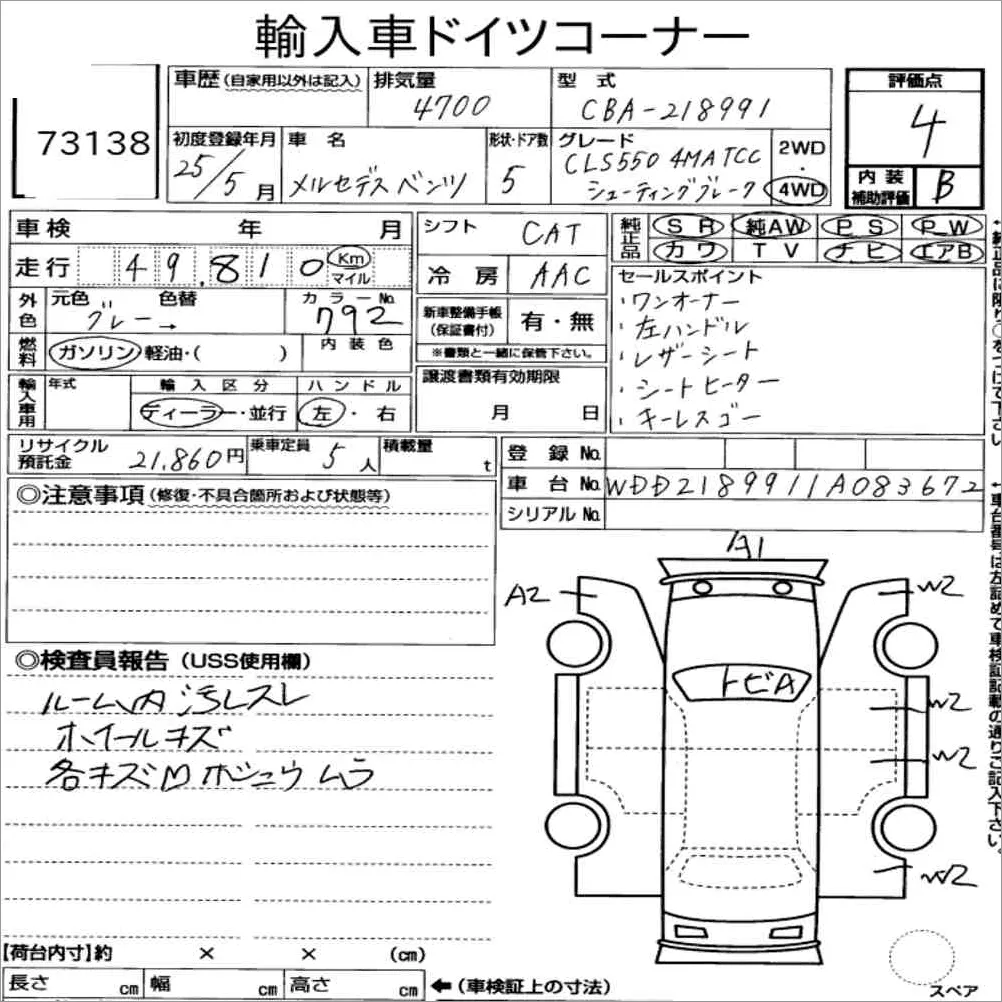 輸入車ドイツコーナー
73138
車歴(自家用以外は記入) 排気量 型 式 評価点
4700 CBA-218991 4
初度登録年月 車 名 形状・ドア数 グレード 2WD・4WD 内装補助評価
25/5月 メルセデスベンツ 5 CLS550 4MATCC B
シューティングブレーク
車検 年 月 シフト CAT 純正品 SR 純AW PS PW
カワ TV ナビ エアB
走行 49,810 Km マイル 冷房 AAC
セールスポイント
・ワンオーナー
・左ハンドル
・レザーシート
・シートヒーター
・キーレスゴー
外色 元色 色替 カラーNo.
グレー→ 792
新車整備手帳(保証書付) 有・無
※書類と一緒に保管下さい。
燃料 ガソリン 軽油・( ) 内装色
譲渡書類有効期限
月 日
輸入車用 年式 輸入区分 ハンドル
ディーラー・並行 左・右
リサイクル預託金 21,860円 乗車定員 5人 積載量 t
登録No.
車台No. WDD2189911A083672
シリアルNo.
◎注意事項(修復・不具合箇所および状態等)
◎検査員報告(USS使用欄)
ルーム内汚レスレ
ホイールキズ
各キズ凹ボシュウムラ
A1
A2
W2
トビA
W2
W2
W2
【荷台内寸】約 × × (cm)
長さ cm 幅 cm 高さ cm ←(車検証上の寸法)
スペア
←車台番号は左詰めで車検証記載の通りご記入下さい。